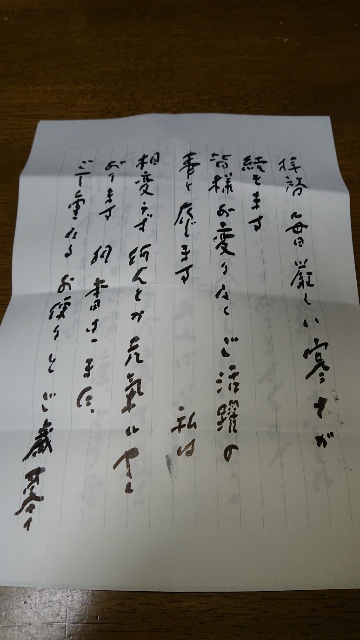 拝啓 毎日厳しい寒さが
続きます
皆様お変りなくご活躍の
事と存じます 私は
相変らず何んとか元気にやって
おります 何時も
ご丁重なる お便りとご歳暮